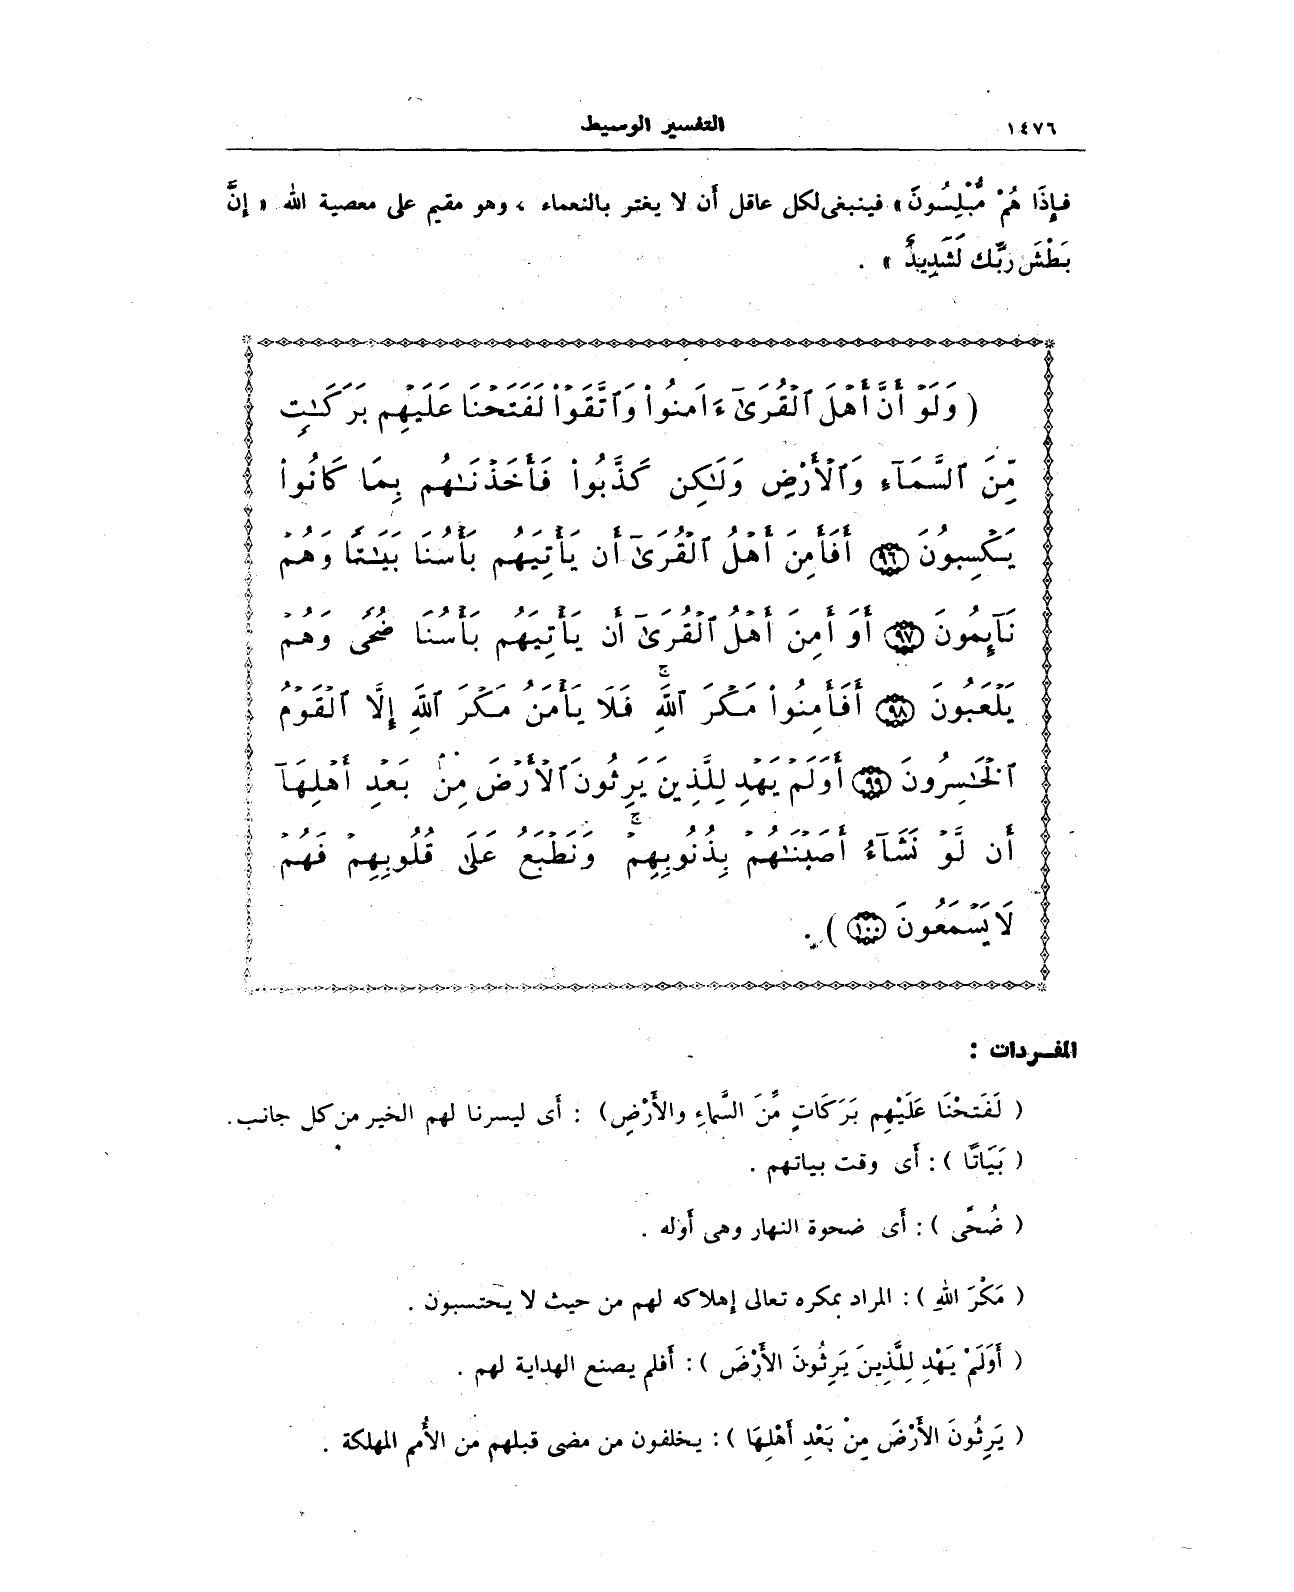 ١٤٧٦ التفسير الوسيط
فَإِذَا هُمْ مُّبْلِسُونَ» فينبغى لكل عاقل أَن لا يغتر بالنعماء ، وهو مقيم على معصية الله « إِنَّ
بَطْشَ رَبِّكَ لَشَدِيدٌ » .
( وَلَوْ أَنَّ أَهْلَ ٱلْقُرَىٰٓ ءَامَنُوا۟ وَٱتَّقَوْا۟ لَفَتَحْنَا عَلَيْهِم بَرَكَـٰتٍ
مِّنَ ٱلسَّمَآءِ وَٱلْأَرْضِ وَلَـٰكِن كَذَّبُوا۟ فَأَخَذْنَـٰهُم بِمَا كَانُوا۟
يَكْسِبُونَ ٩٦ أَفَأَمِنَ أَهْلُ ٱلْقُرَىٰٓ أَن يَأْتِيَهُم بَأْسُنَا بَيَـٰتًا وَهُمْ
نَآئِمُونَ ٩٧ أَوَ أَمِنَ أَهْلُ ٱلْقُرَىٰٓ أَن يَأْتِيَهُم بَأْسُنَا ضُحًى وَهُمْ
يَلْعَبُونَ ٩٨ أَفَأَمِنُوا۟ مَكْرَ ٱللَّهِ ۚ فَلَا يَأْمَنُ مَكْرَ ٱللَّهِ إِلَّا ٱلْقَوْمُ
ٱلْخَـٰسِرُونَ ٩٩ أَوَلَمْ يَهْدِ لِلَّذِينَ يَرِثُونَ ٱلْأَرْضَ مِنۢ بَعْدِ أَهْلِهَآ
أَن لَّوْ نَشَآءُ أَصَبْنَـٰهُم بِذُنُوبِهِمْ ۚ وَنَطْبَعُ عَلَىٰ قُلُوبِهِمْ فَهُمْ
لَا يَسْمَعُونَ ١٠٠ ) .
المفـردات :
( لَفَتَحْنَا عَلَيْهِم بَرَكَاتٍ مِّنَ السَّمَاءِ والأَرْضِ) : أَى ليسرنا لهم الخير من كل جانب .
( بَيَاتًا ) : أَى وقت بياتهم .
( ضُحًى ) : أَى ضحوة النهار وهى أَوله .
( مَكْرَ اللهِ ) : المراد بمكره تعالى إهلاكه لهم من حيث لا يحتسبون .
( أَوَلَمْ يَهْدِ لِلَّذِينَ يَرِثُونَ الأَرْضَ ) : أَفلم يصنع الهداية لهم .
( يَرِثُونَ الأَرْضَ مِنْ بَعْدِ أَهْلِهَا ) : يخلفون من مضى قبلهم من الأُمم المهلكة .